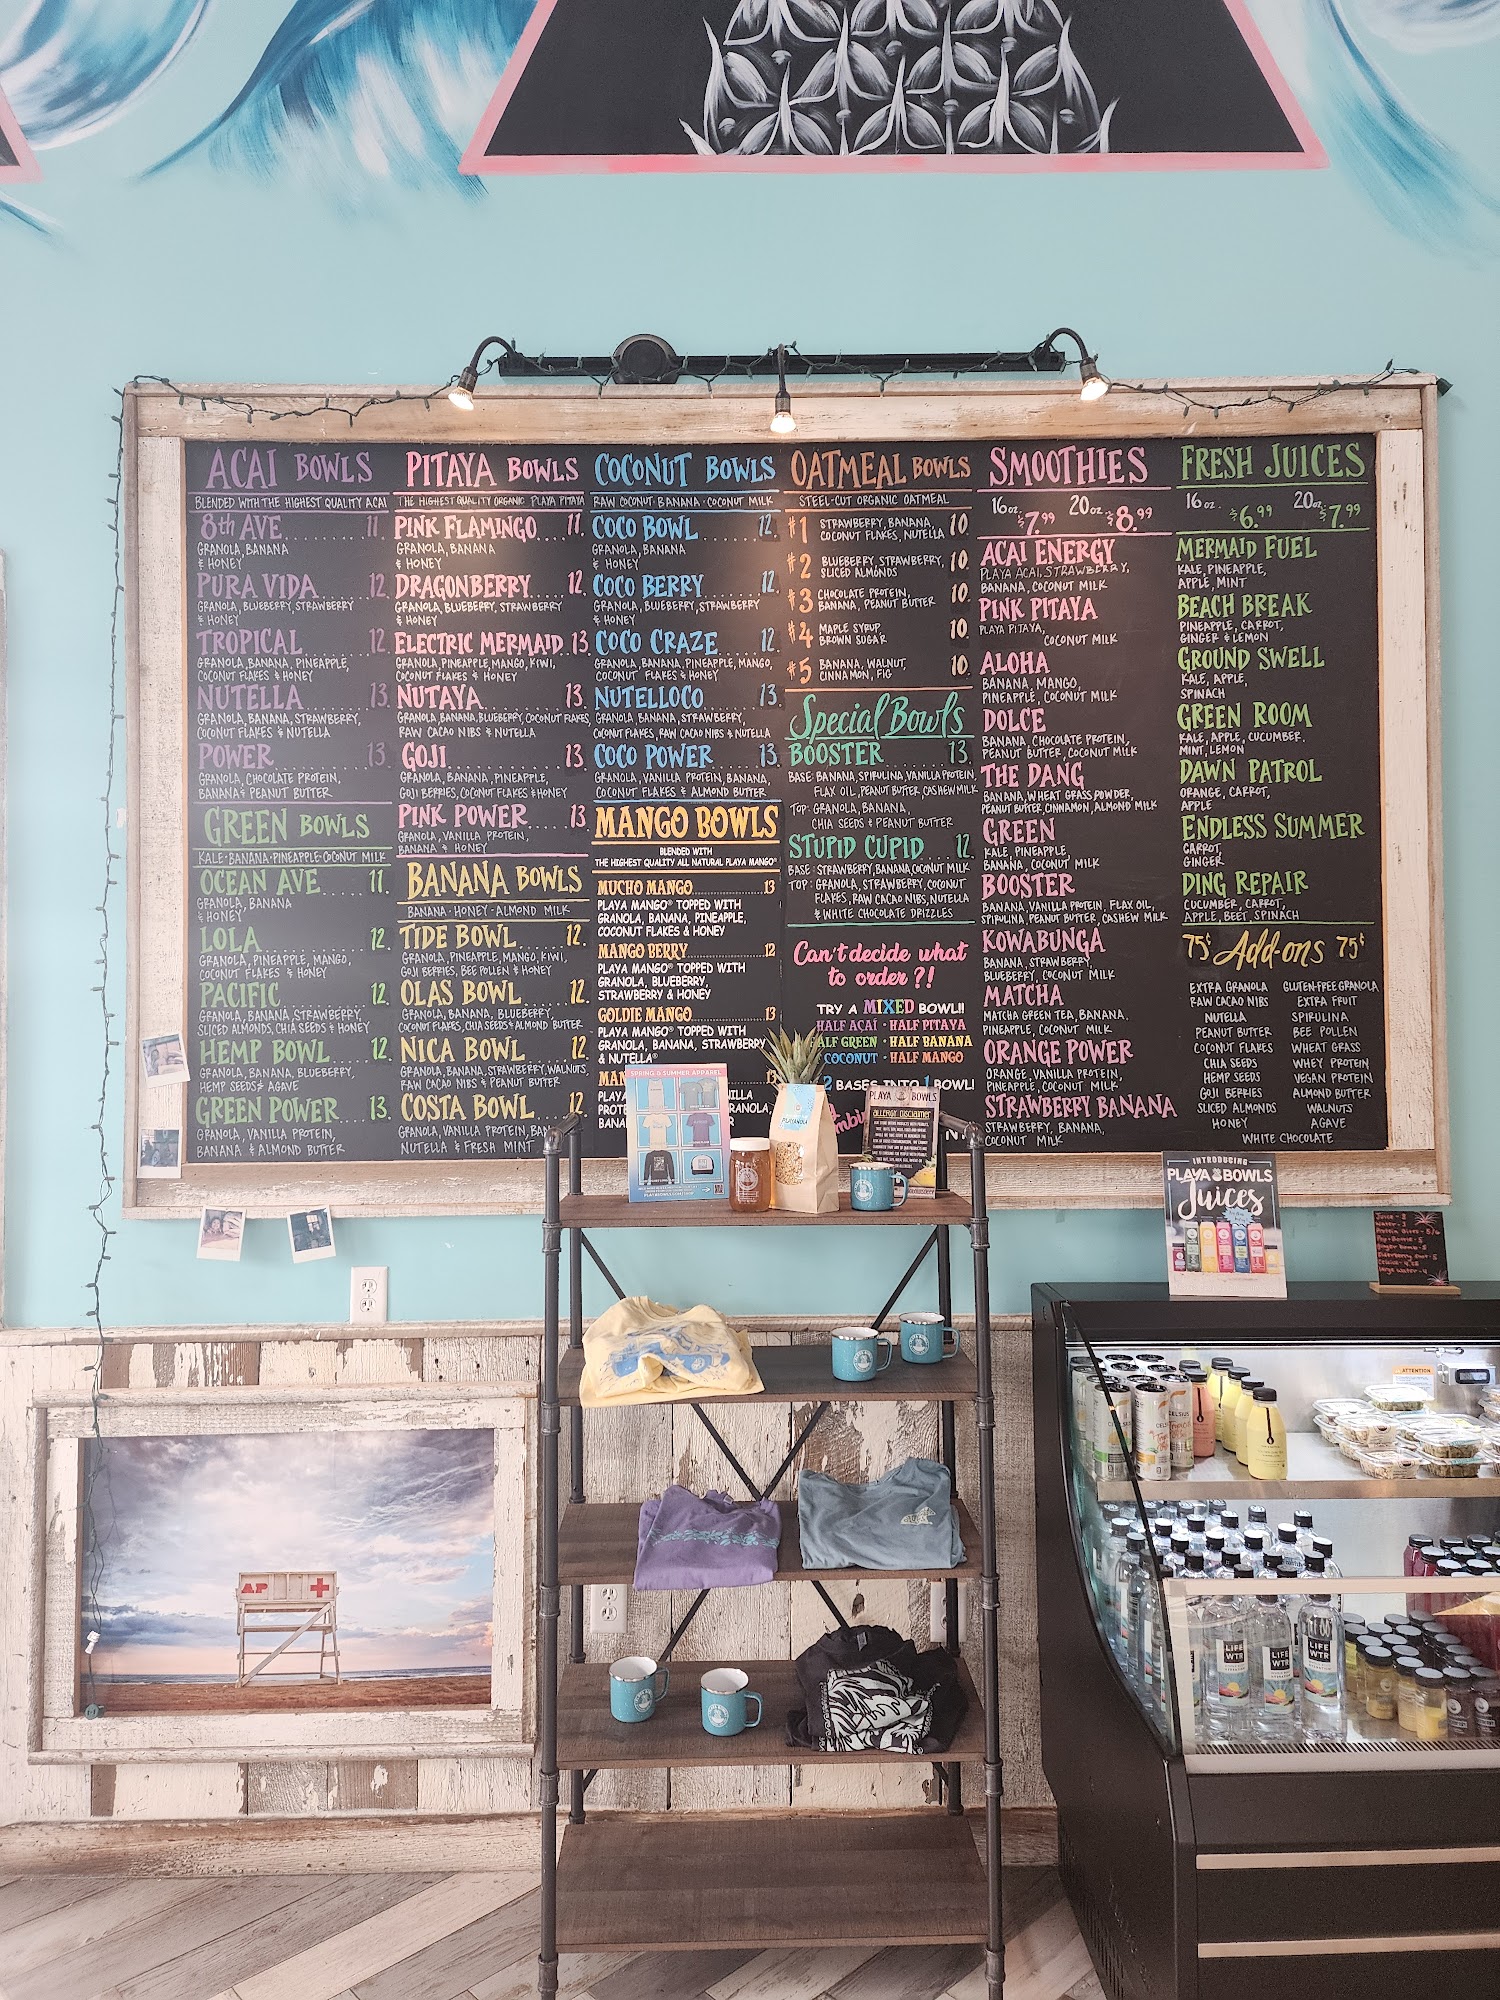 ACAI BOWLS
BLENDED WITH THE HIGHEST QUALITY ACAI
8th AVE 11.
GRANOLA, BANANA
& HONEY
PURA VIDA 12.
GRANOLA, BLUEBERRY, STRAWBERRY
& HONEY
TROPICAL 12.
GRANOLA, BANANA, PINEAPPLE,
COCONUT FLAKES & HONEY
NUTELLA 13.
GRANOLA, BANANA, STRAWBERRY,
COCONUT FLAKES & NUTELLA
POWER 13.
GRANOLA, CHOCOLATE PROTEIN,
BANANA & PEANUT BUTTER
GREEN BOWLS
KALE · BANANA · PINEAPPLE · COCONUT MILK
OCEAN AVE.....11.
GRANOLA, BANANA
& HONEY
LOLA 12.
GRANOLA, PINEAPPLE, MANGO,
COCONUT FLAKES & HONEY
PACIFIC 12.
GRANOLA, BANANA, STRAWBERRY,
SLICED ALMONDS, CHIA SEEDS & HONEY
HEMP BOWL....12.
GRANOLA, BANANA, BLUEBERRY,
HEMP SEEDS & AGAVE
GREEN POWER...13.
GRANOLA, VANILLA PROTEIN,
BANANA & ALMOND BUTTER
PITAYA BOWLS
THE HIGHEST QUALITY ORGANIC PLAYA PITAYA
PINK FLAMINGO...11.
GRANOLA, BANANA
& HONEY
DRAGONBERRY....12.
GRANOLA, BLUEBERRY, STRAWBERRY
& HONEY
ELECTRIC MERMAID.13.
GRANOLA, PINEAPPLE, MANGO, KIWI,
COCONUT FLAKES & HONEY
NUTAYA 13.
GRANOLA, BANANA, BLUEBERRY, COCONUT FLAKES,
RAW CACAO NIBS & NUTELLA
GOJI 13.
GRANOLA, BANANA, PINEAPPLE,
GOJI BERRIES, COCONUT FLAKES & HONEY
PINK POWER....13.
GRANOLA, VANILLA PROTEIN,
BANANA & HONEY
BANANA BOWLS
BANANA · HONEY · ALMOND MILK
TIDE BOWL.....12.
GRANOLA, PINEAPPLE, MANGO, KIWI,
GOJI BERRIES, BEE POLLEN & HONEY
OLAS BOWL....12.
GRANOLA, BANANA, BLUEBERRY,
COCONUT FLAKES, CHIA SEEDS & ALMOND BUTTER
NICA BOWL....12.
GRANOLA, BANANA, STRAWBERRY, WALNUTS,
RAW CACAO NIBS & PEANUT BUTTER
COSTA BOWL...12.
GRANOLA, VANILLA PROTEIN,
NUTELLA & FRESH MINT
COCONUT BOWLS
RAW COCONUT · BANANA · COCONUT MILK
COCO BOWL 12.
GRANOLA, BANANA
& HONEY
COCO BERRY 12.
GRANOLA, BLUEBERRY, STRAWBERRY
& HONEY
COCO CRAZE 12.
GRANOLA, BANANA, PINEAPPLE, MANGO,
COCONUT FLAKES & HONEY
NUTELLOCO 13.
GRANOLA BANANA, STRAWBERRY,
COCONUT FLAKES, RAW CACAO NIBS & NUTELLA
COCO POWER 13.
GRANOLA, VANILLA PROTEIN, BANANA,
COCONUT FLAKES & ALMOND BUTTER
MANGO BOWLS
BLENDED WITH
THE HIGHEST QUALITY ALL NATURAL PLAYA MANGO®
MUCHO MANGO 13
PLAYA MANGO® TOPPED WITH
GRANOLA, BANANA, PINEAPPLE,
COCONUT FLAKES & HONEY
MANGO BERRY 12
PLAYA MANGO® TOPPED WITH
GRANOLA, BLUEBERRY,
STRAWBERRY & HONEY
GOLDIE MANGO 13
PLAYA MANGO® TOPPED WITH
GRANOLA, BANANA, STRAWBERRY
& NUTELLA®
OATMEAL BOWLS
STEEL-CUT ORGANIC OATMEAL
#1 STRAWBERRY, BANANA, 10.
COCONUT FLAKES, NUTELLA
#2 BLUEBERRY, STRAWBERRY, 10.
SLICED ALMONDS
#3 CHOCOLATE PROTEIN, 10.
BANANA, PEANUT BUTTER
#4 MAPLE SYRUP 10.
BROWN SUGAR
#5 BANANA, WALNUT, 10.
CINNAMON, FIG
Special Bowls
BOOSTER 13.
BASE: BANANA, SPIRULINA, VANILLA PROTEIN,
FLAX OIL, PEANUT BUTTER, CASHEW MILK
TOP: GRANOLA, BANANA,
CHIA SEEDS & PEANUT BUTTER
STUPID CUPID 12.
BASE: STRAWBERRY, BANANA, COCONUT MILK
TOP: GRANOLA, STRAWBERRY, COCONUT
FLAKES, RAW CACAO NIBS, NUTELLA
& WHITE CHOCOLATE DRIZZLES
Can't decide what
to order?!
TRY A MIXED BOWL!!
HALF AÇAÍ · HALF PITAYA
HALF GREEN · HALF BANANA
COCONUT · HALF MANGO
2 BASES INTO 1 BOWL!
SMOOTHIES
16oz. $7.99 20oz. $8.99
ACAI ENERGY
PLAYA ACAI, STRAWBERRY,
BANANA, COCONUT MILK
PINK PITAYA
PLAYA PITAYA,
COCONUT MILK
ALOHA
BANANA, MANGO,
PINEAPPLE, COCONUT MILK
DOLCE
BANANA, CHOCOLATE PROTEIN,
PEANUT BUTTER, COCONUT MILK
THE DANG
BANANA, WHEAT GRASS POWDER,
PEANUT BUTTER, CINNAMON, ALMOND MILK
GREEN
KALE, PINEAPPLE,
BANANA, COCONUT MILK
BOOSTER
BANANA, VANILLA PROTEIN, FLAX OIL,
SPIRULINA, PEANUT BUTTER, CASHEW MILK
KOWABUNGA
BANANA, STRAWBERRY,
BLUEBERRY, COCONUT MILK
MATCHA
MATCHA GREEN TEA, BANANA,
PINEAPPLE, COCONUT MILK
ORANGE POWER
ORANGE, VANILLA PROTEIN,
PINEAPPLE, COCONUT MILK
STRAWBERRY BANANA
STRAWBERRY, BANANA,
COCONUT MILK
FRESH JUICES
16oz. $6.99 20oz. $7.99
MERMAID FUEL
KALE, PINEAPPLE,
APPLE, MINT
BEACH BREAK
PINEAPPLE, CARROT,
GINGER & LEMON
GROUND SWELL
KALE, APPLE,
SPINACH
GREEN ROOM
KALE, APPLE, CUCUMBER,
MINT, LEMON
DAWN PATROL
ORANGE, CARROT,
APPLE
ENDLESS SUMMER
CARROT,
GINGER
DING REPAIR
CUCUMBER, CARROT,
APPLE, BEET, SPINACH
75¢ Add-ons 75¢
EXTRA GRANOLA GLUTEN-FREE GRANOLA
RAW CACAO NIBS EXTRA FRUIT
NUTELLA SPIRULINA
PEANUT BUTTER BEE POLLEN
COCONUT FLAKES WHEAT GRASS
CHIA SEEDS WHEY PROTEIN
HEMP SEEDS VEGAN PROTEIN
GOJI BERRIES ALMOND BUTTER
SLICED ALMONDS WALNUTS
HONEY AGAVE
WHITE CHOCOLATE
SPRING & SUMMER APPAREL
PLAYA BOWLS
ALLERGY DISCLAIMER
INTRODUCING
PLAYA BOWLS
Juices
ATTENTION
CELSIUS
LIFE
WTR
LIFE
WTR
LIFE
WTR
AP